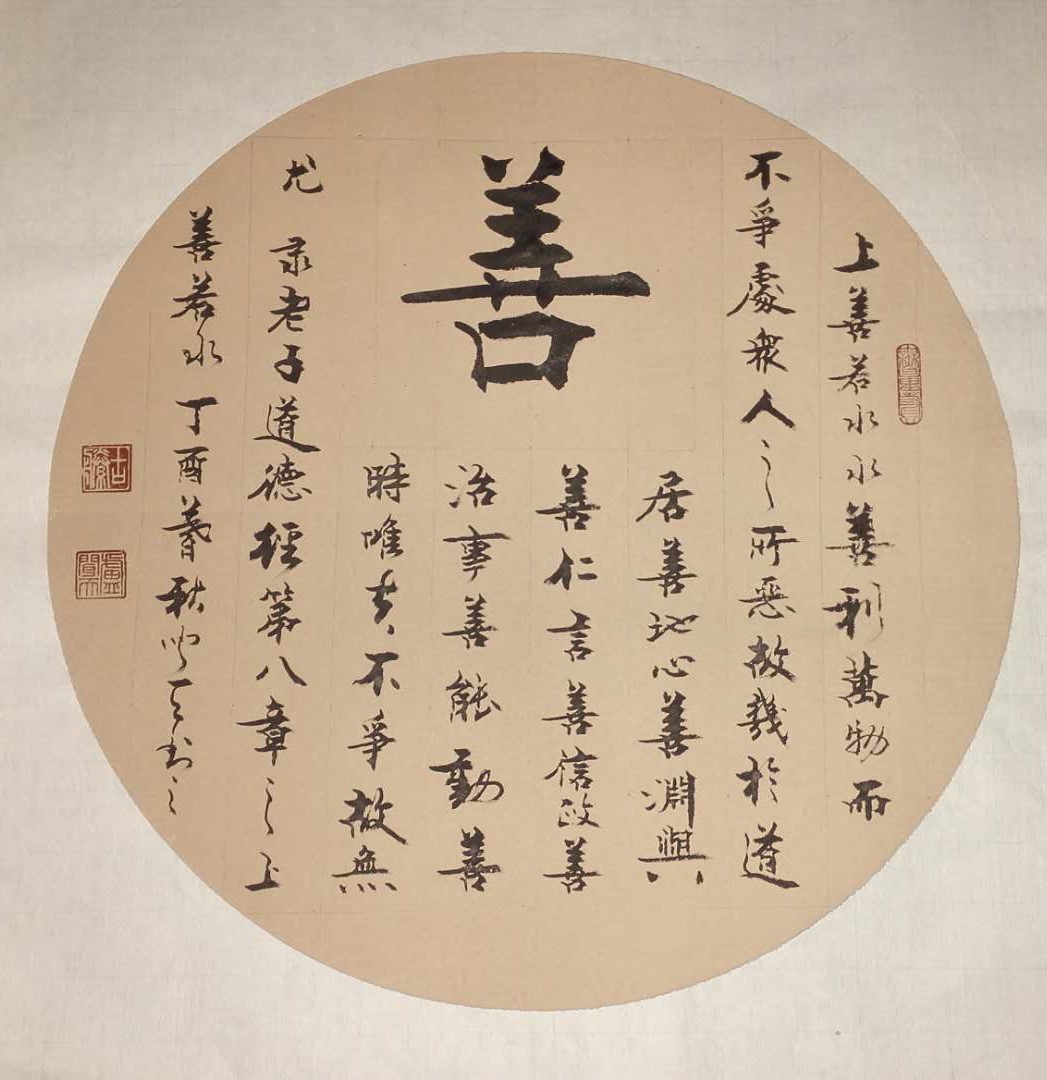 上善若水水善利萬物而
不爭處衆人之所惡故幾於道
善
居善地心善淵與
善仁言善信政善
治事善能動善
時唯夫不爭故無
尤 录老子道德經第八章之上
善若水丁酉暮秋